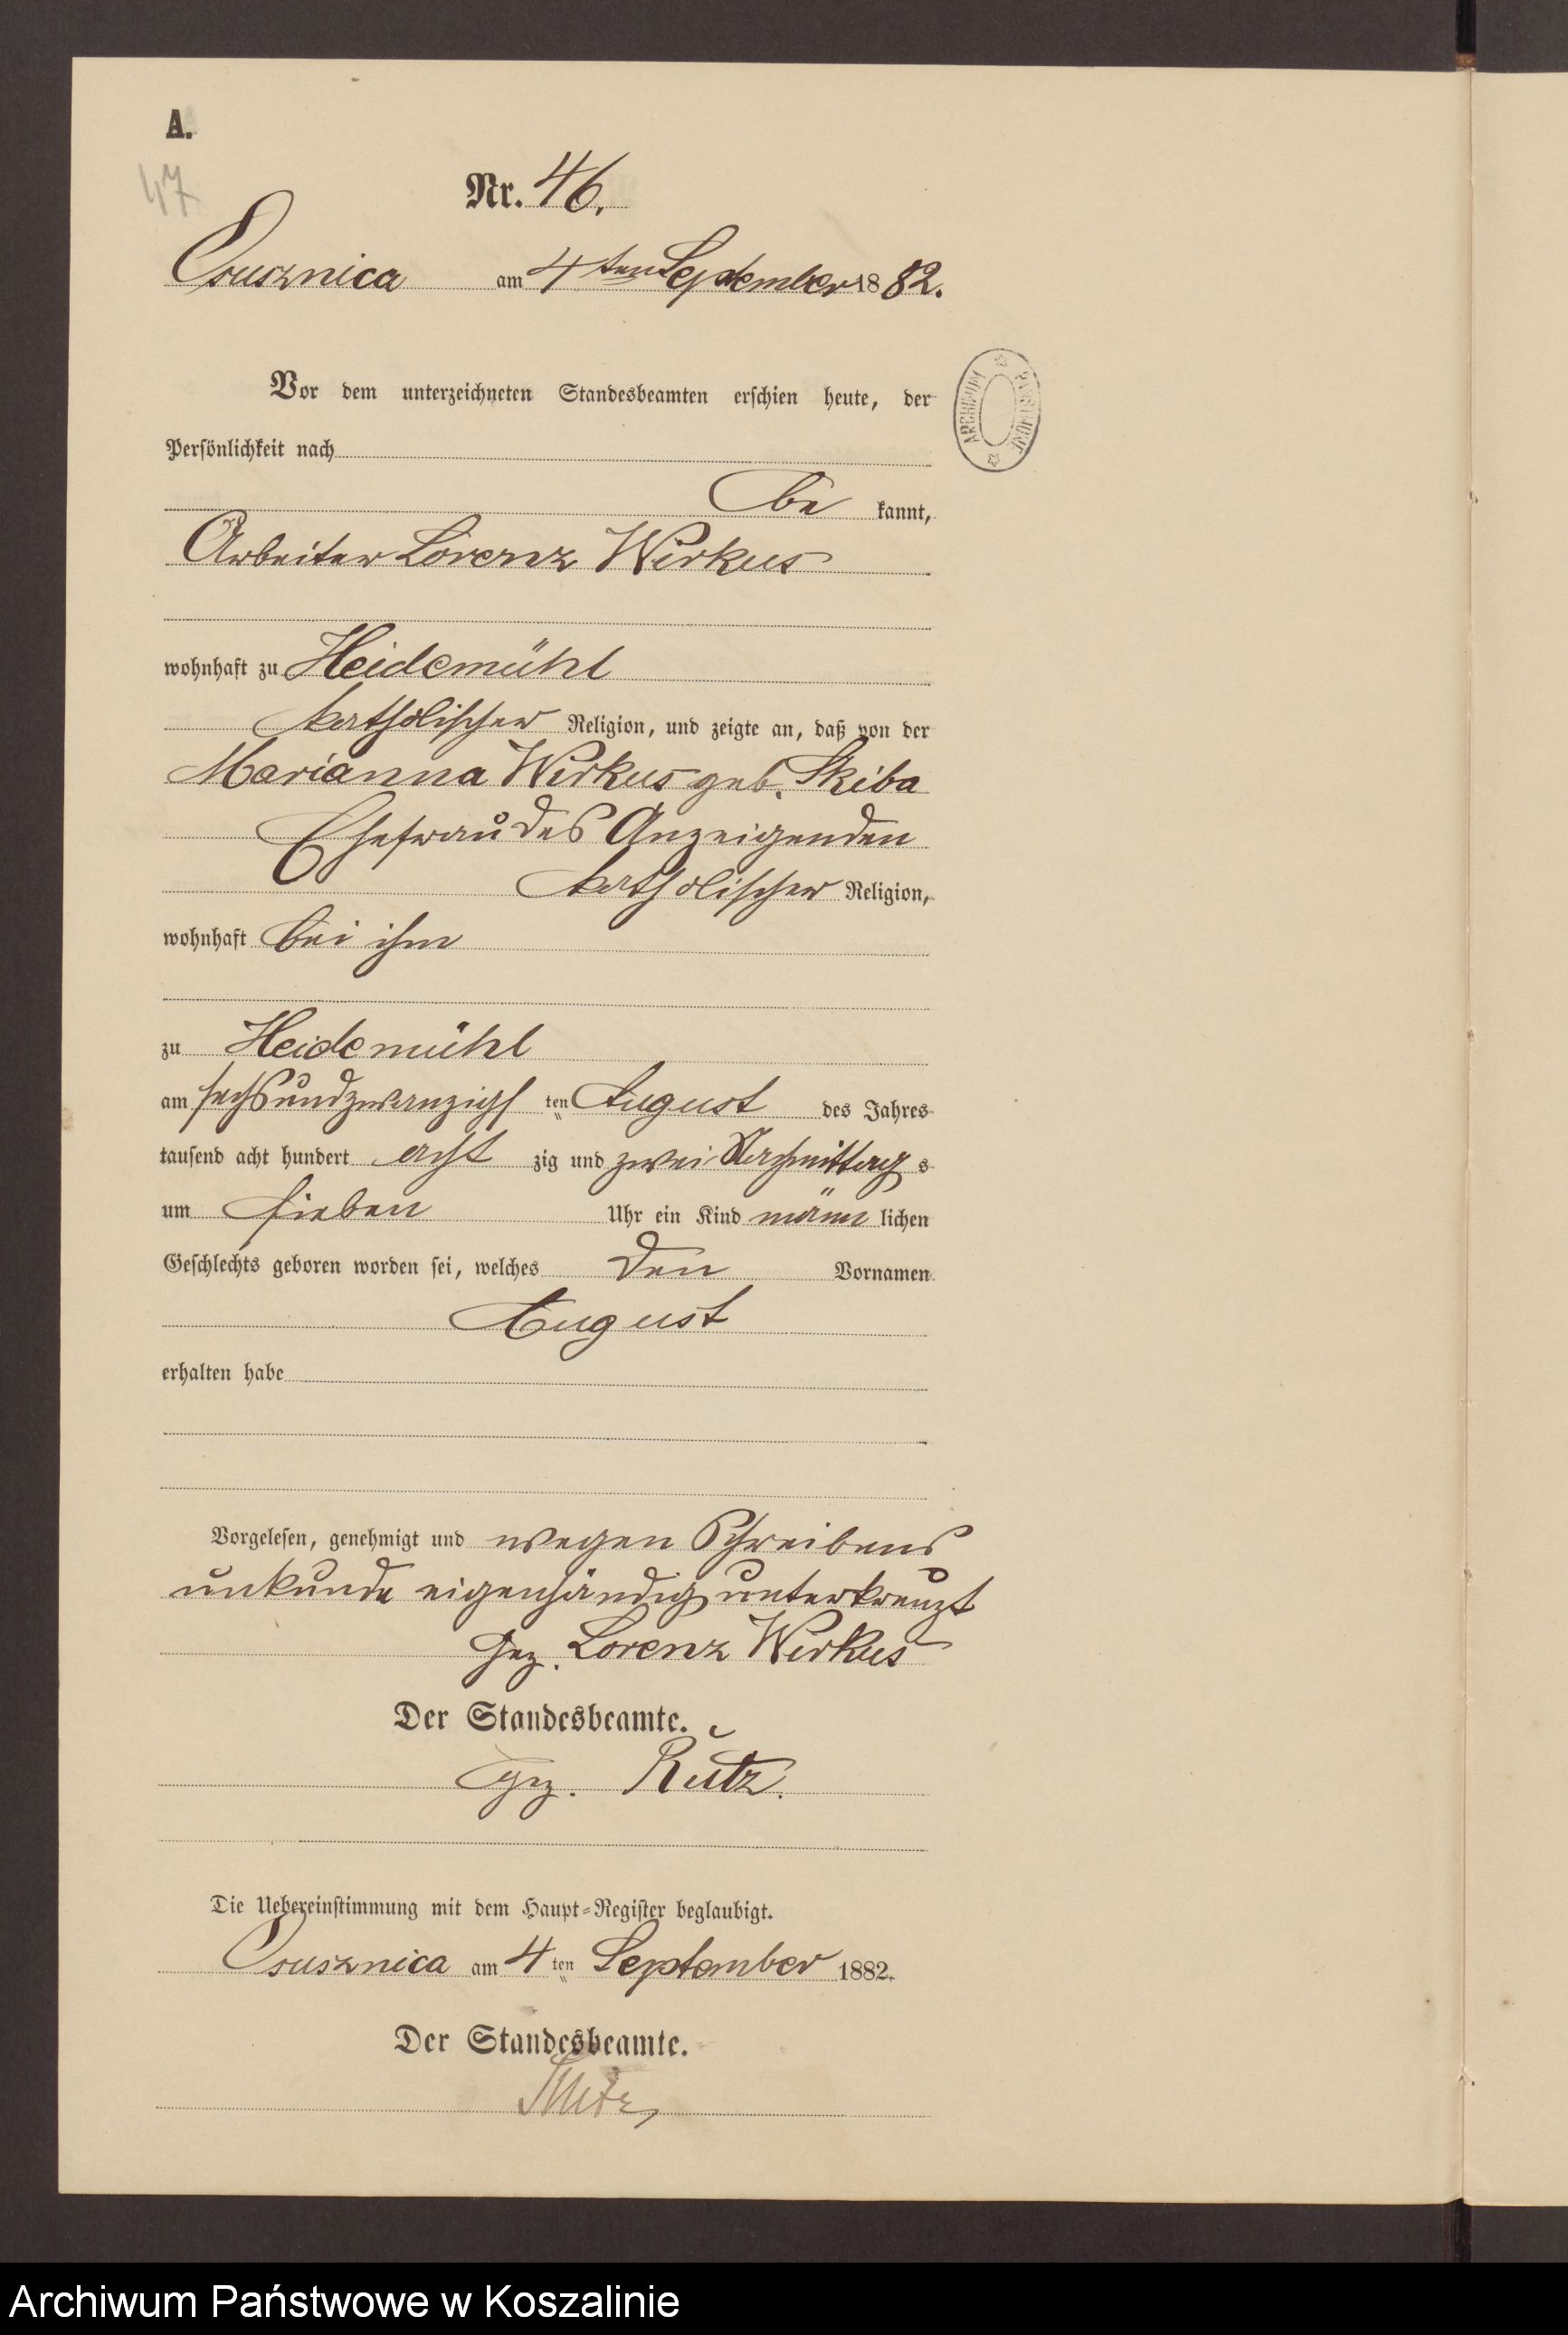 A.
47
Nr. 46.
Osusznica am 4ten September 1882.
Vor dem unterzeichneten Standesbeamten erschien heute, der
Persönlichkeit nach
be kannt,
Arbeiter Lorenz Wirkus
wohnhaft zu Heidemühl
katholischer Religion, und zeigte an, daß von der
Marianna Wirkus geb. Skiba
Ehefrau des Anzeigenden
katholischer Religion,
wohnhaft bei ihm
zu Heidemühl
am sechsundzwanzigs ten August des Jahres
tausend acht hundert acht zig und zwei Nachmittag s
um sieben Uhr ein Kind männ lichen
Geschlechts geboren worden sei, welches den Vornamen
August
erhalten habe
Vorgelesen, genehmigt und wegen Schreibens
unkunde eigenhändig unterkreuzt
gez. Lorenz Wirkus
Der Standesbeamte.
gez. Rutz.
Die Uebereinstimmung mit dem Haupt-Register beglaubigt.
Osusznica am 4 ten September 1882.
Der Standesbeamte.
Rutz
ARCHIWUM PAŃSTWOWE
Archiwum Państwowe w Koszalinie